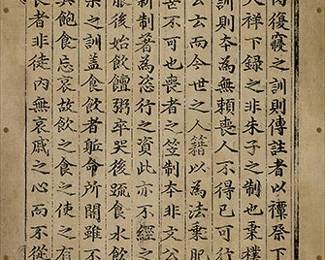 內復寢之訓則傳註者以禫祭下
大祥下錄之非朱子之制也秉樸
訓則夲為無賴喪人不得已可行
而今世之人籍以為法乘肥
世不可也喪者之笠制夲非文公
新制著為恣行之資此亦不經之
後始飲饘粥卒哭後疏食水飲
之訓盖食飲者軀命所關雖不
飽食忘哀故飲之食之使之有
喪者非徒內無哀戚之心而不從